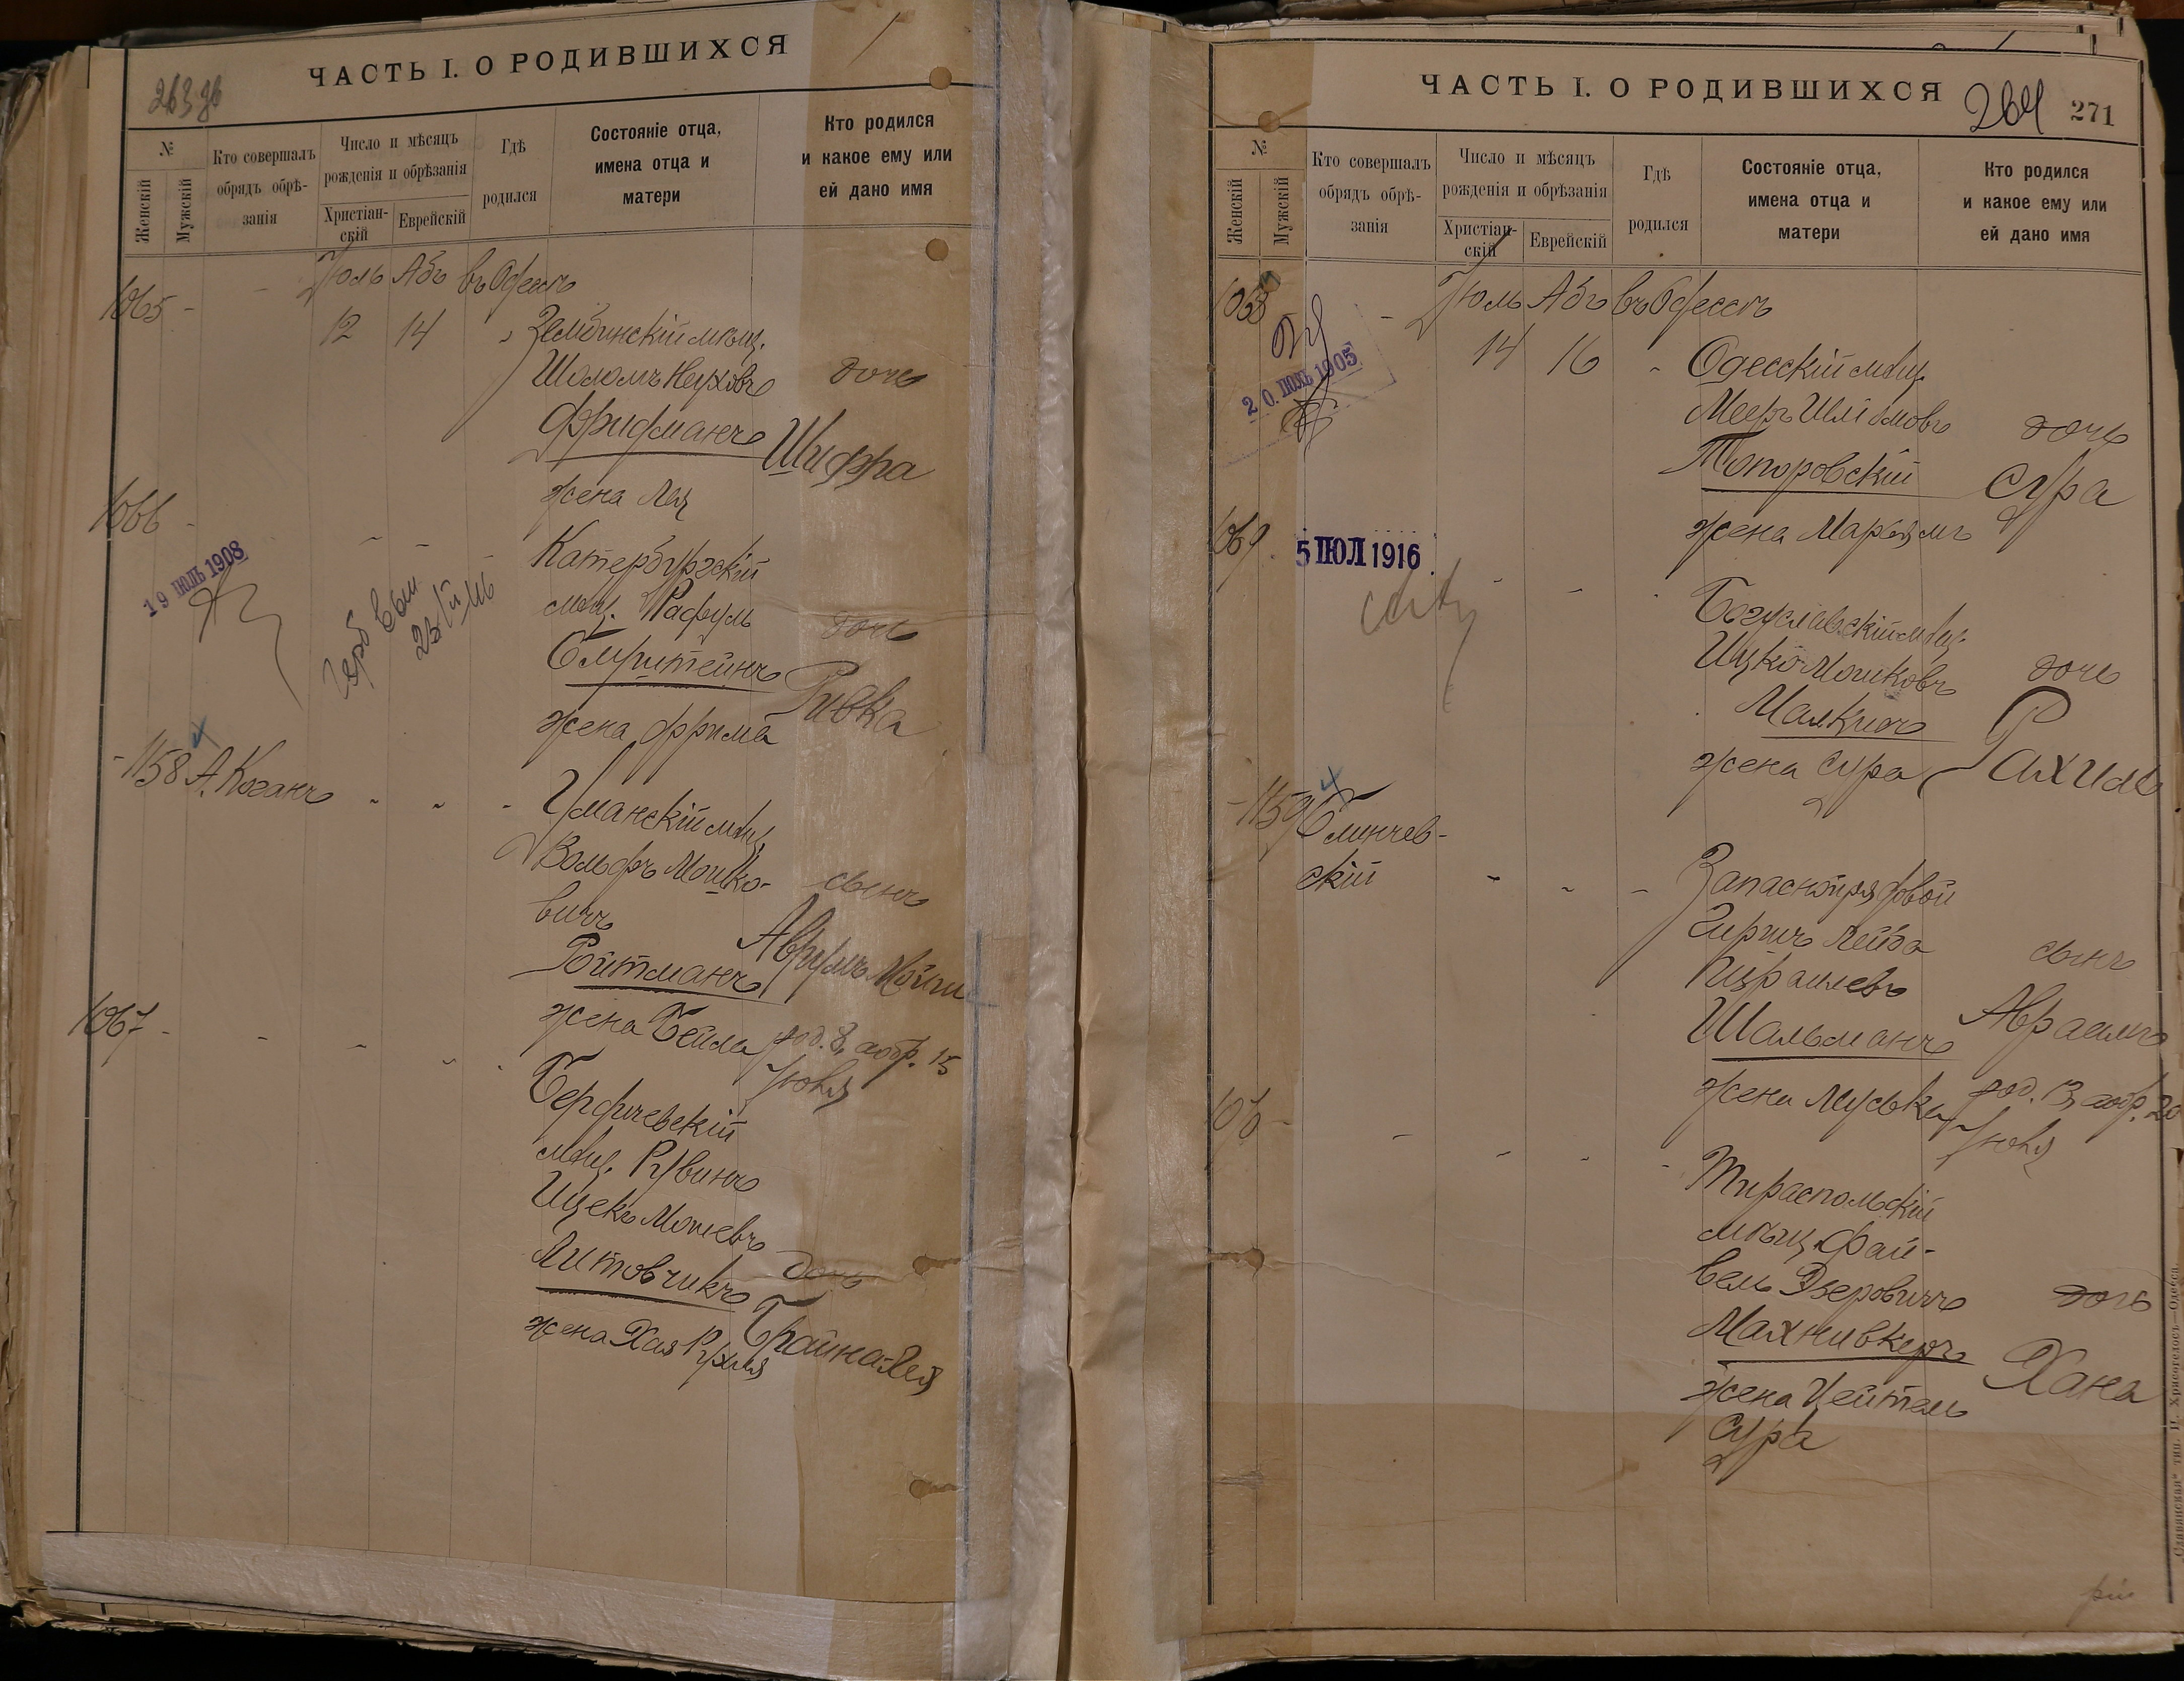 ЧАСТЬ I. О РОДИВШИХСЯ
263 об
№
Женскій
Мужскій
Кто совершалъ
обрядъ обрѣ-
занія
Число и мѣсяцъ
рожденія и обрѣзанія
Христіан-
скій
Еврейскій
Гдѣ
родился
Состояніе отца,
имена отца и
матери
Кто родился
и какое ему или
ей дано имя
1065 - - Іюль Абъ въ Одессѣ
12 14 Зембинскій мѣщ.
Шоломъ Нуховъ дочь
Фридманъ Шифра
жена Лея
1066 -
Катербургскій
19 ІЮЛЬ 1908
мѣщ. Рафуль дочь
Бмуштейнъ Ривка
жена Фрима
- 1158 А. Коганъ
Уманскій мѣщ.
Вольфъ Мошко- сынъ
вичъ
Ройтманъ Аврумъ Мойше
жена Бейла род. 8, а обр. 15
Іюля
1067 -
Бердичевскій
мѣщ. Рувинъ
Ицекъ Мошевъ
Литовчикъ дочь
жена Хая Рухля Брайна-Лея
ЧАСТЬ I. О РОДИВШИХСЯ
264 271
№
Женскій
Мужскій
Кто совершалъ
обрядъ обрѣ-
занія
Число и мѣсяцъ
рожденія и обрѣзанія
Христіан-
скій
Еврейскій
Гдѣ
родился
Состояніе отца,
имена отца и
матери
Кто родился
и какое ему или
ей дано имя
1068 - Іюль Абъ въ Одессѣ
14 16 Одесскій мѣщ.
20. ІЮЛЬ 1905
Мееръ Шлiомовъ дочь
Топоровскій Сура
жена Марьямъ
1069 5 ІЮЛ 1916
Богуславскій мѣщ.
Ицко Мошковъ дочь
Малкинъ
жена Сура Рахиль
- 1159 Блинчев-
скій
Запасной рядовой
Гиршъ Лейба сынъ
Шальманъ Авраамъ
жена род. 13, а обр. 20
Іюля
1070 -
Тираспольскій
мѣщ. Фай-
вель дочь
Махнивкеръ Хана
жена Цейтель
Сура
Славянская тип. Н. Хрисогелосъ—Одесса.